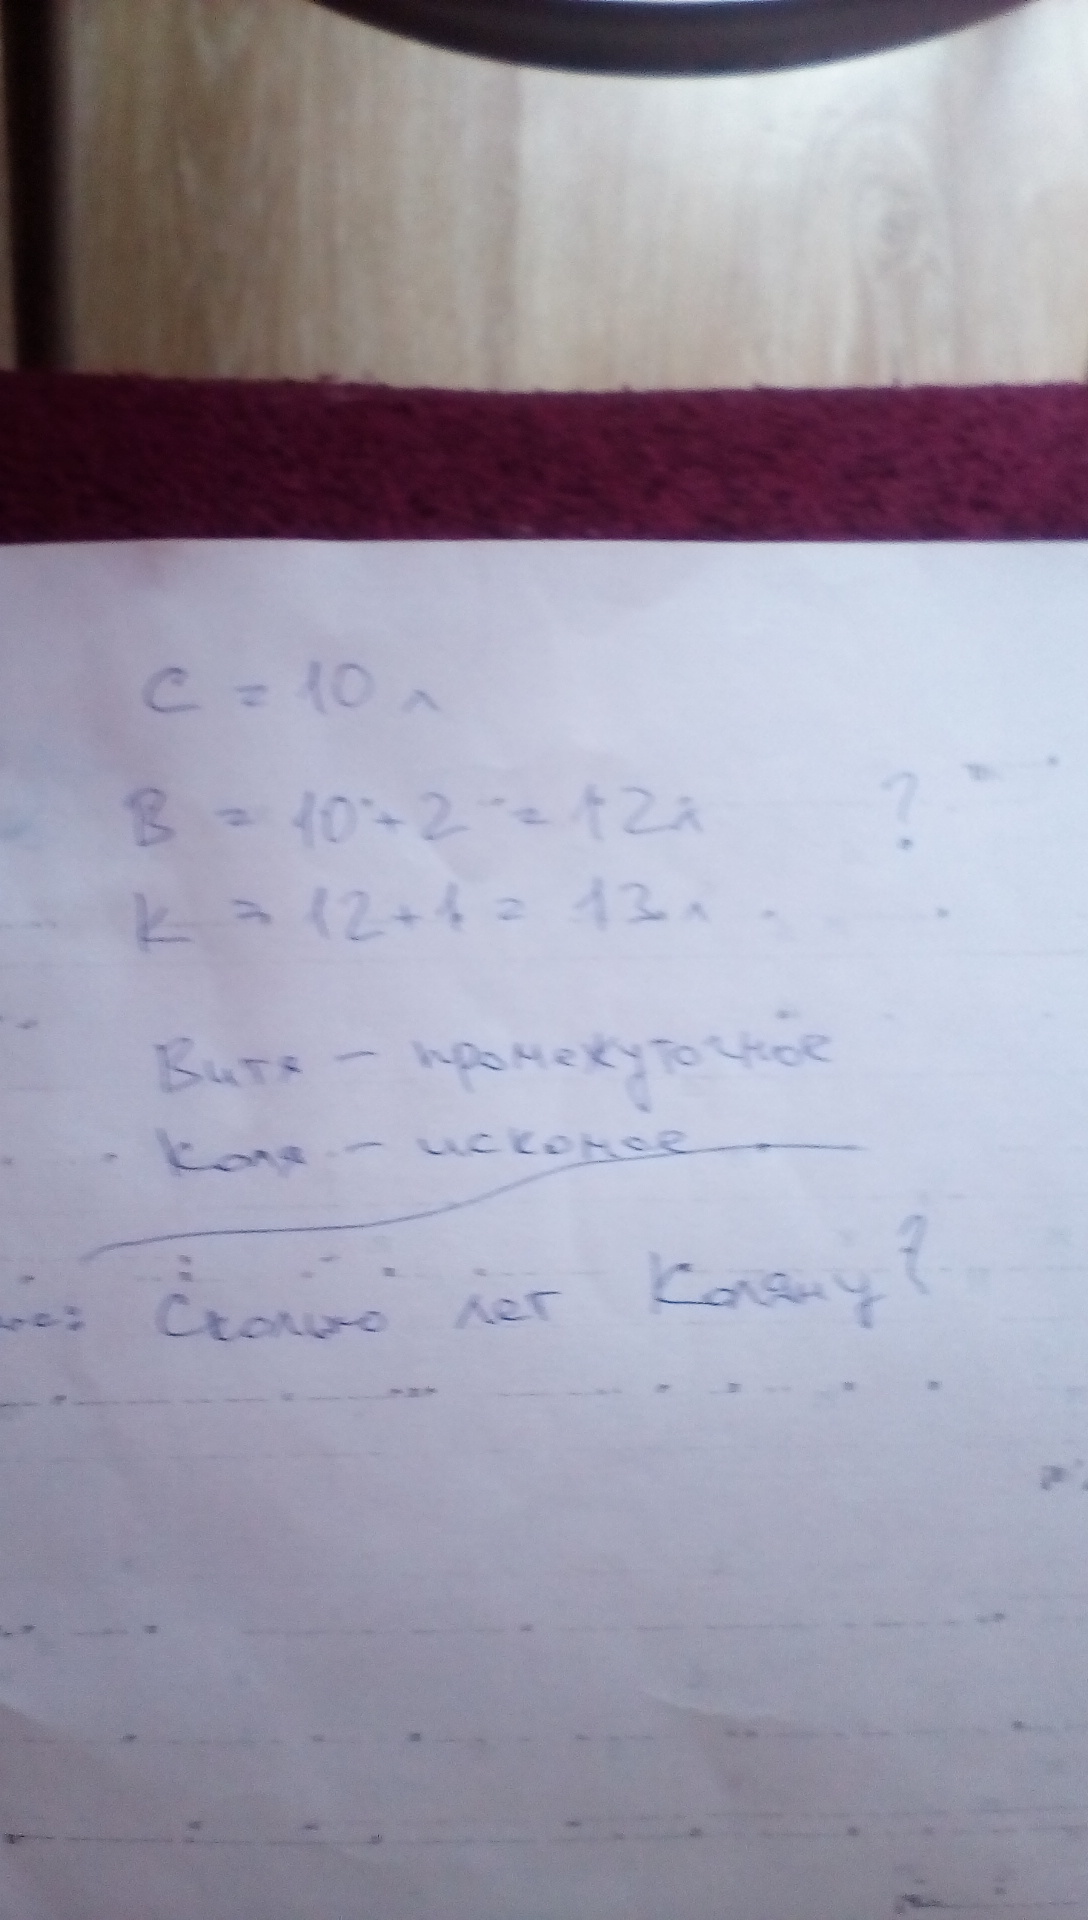 С = 10 л
В = 10 + 2 = 12 л ?
К = 12 + 1 = 13 л
Витя – промежуточное
Коля – искомое
Сколько лет Коляну?